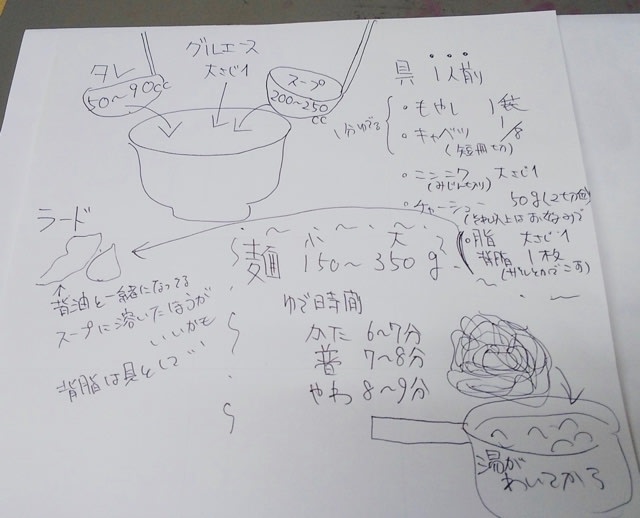 タレ
50〜90cc
グルエース
大さじ1
スープ
200〜250
cc
具 1人前
1分ゆでる
・もやし 1袋
・キャベツ 1/8
(短冊切り)
・ニンニク 大さじ1
(みじん切り)
・チャーシュー 50g(2切
(それ以上はお好みで
・脂 大さじ1
背脂 1枚
ラード
小 大
麺 150〜350g
背油と一緒になってる
スープに溶いたほうが
いいかも
背脂は具として…
ゆで時間
かた 6〜7分
普 7〜8分
やわ 8〜9分
湯が
わいてから